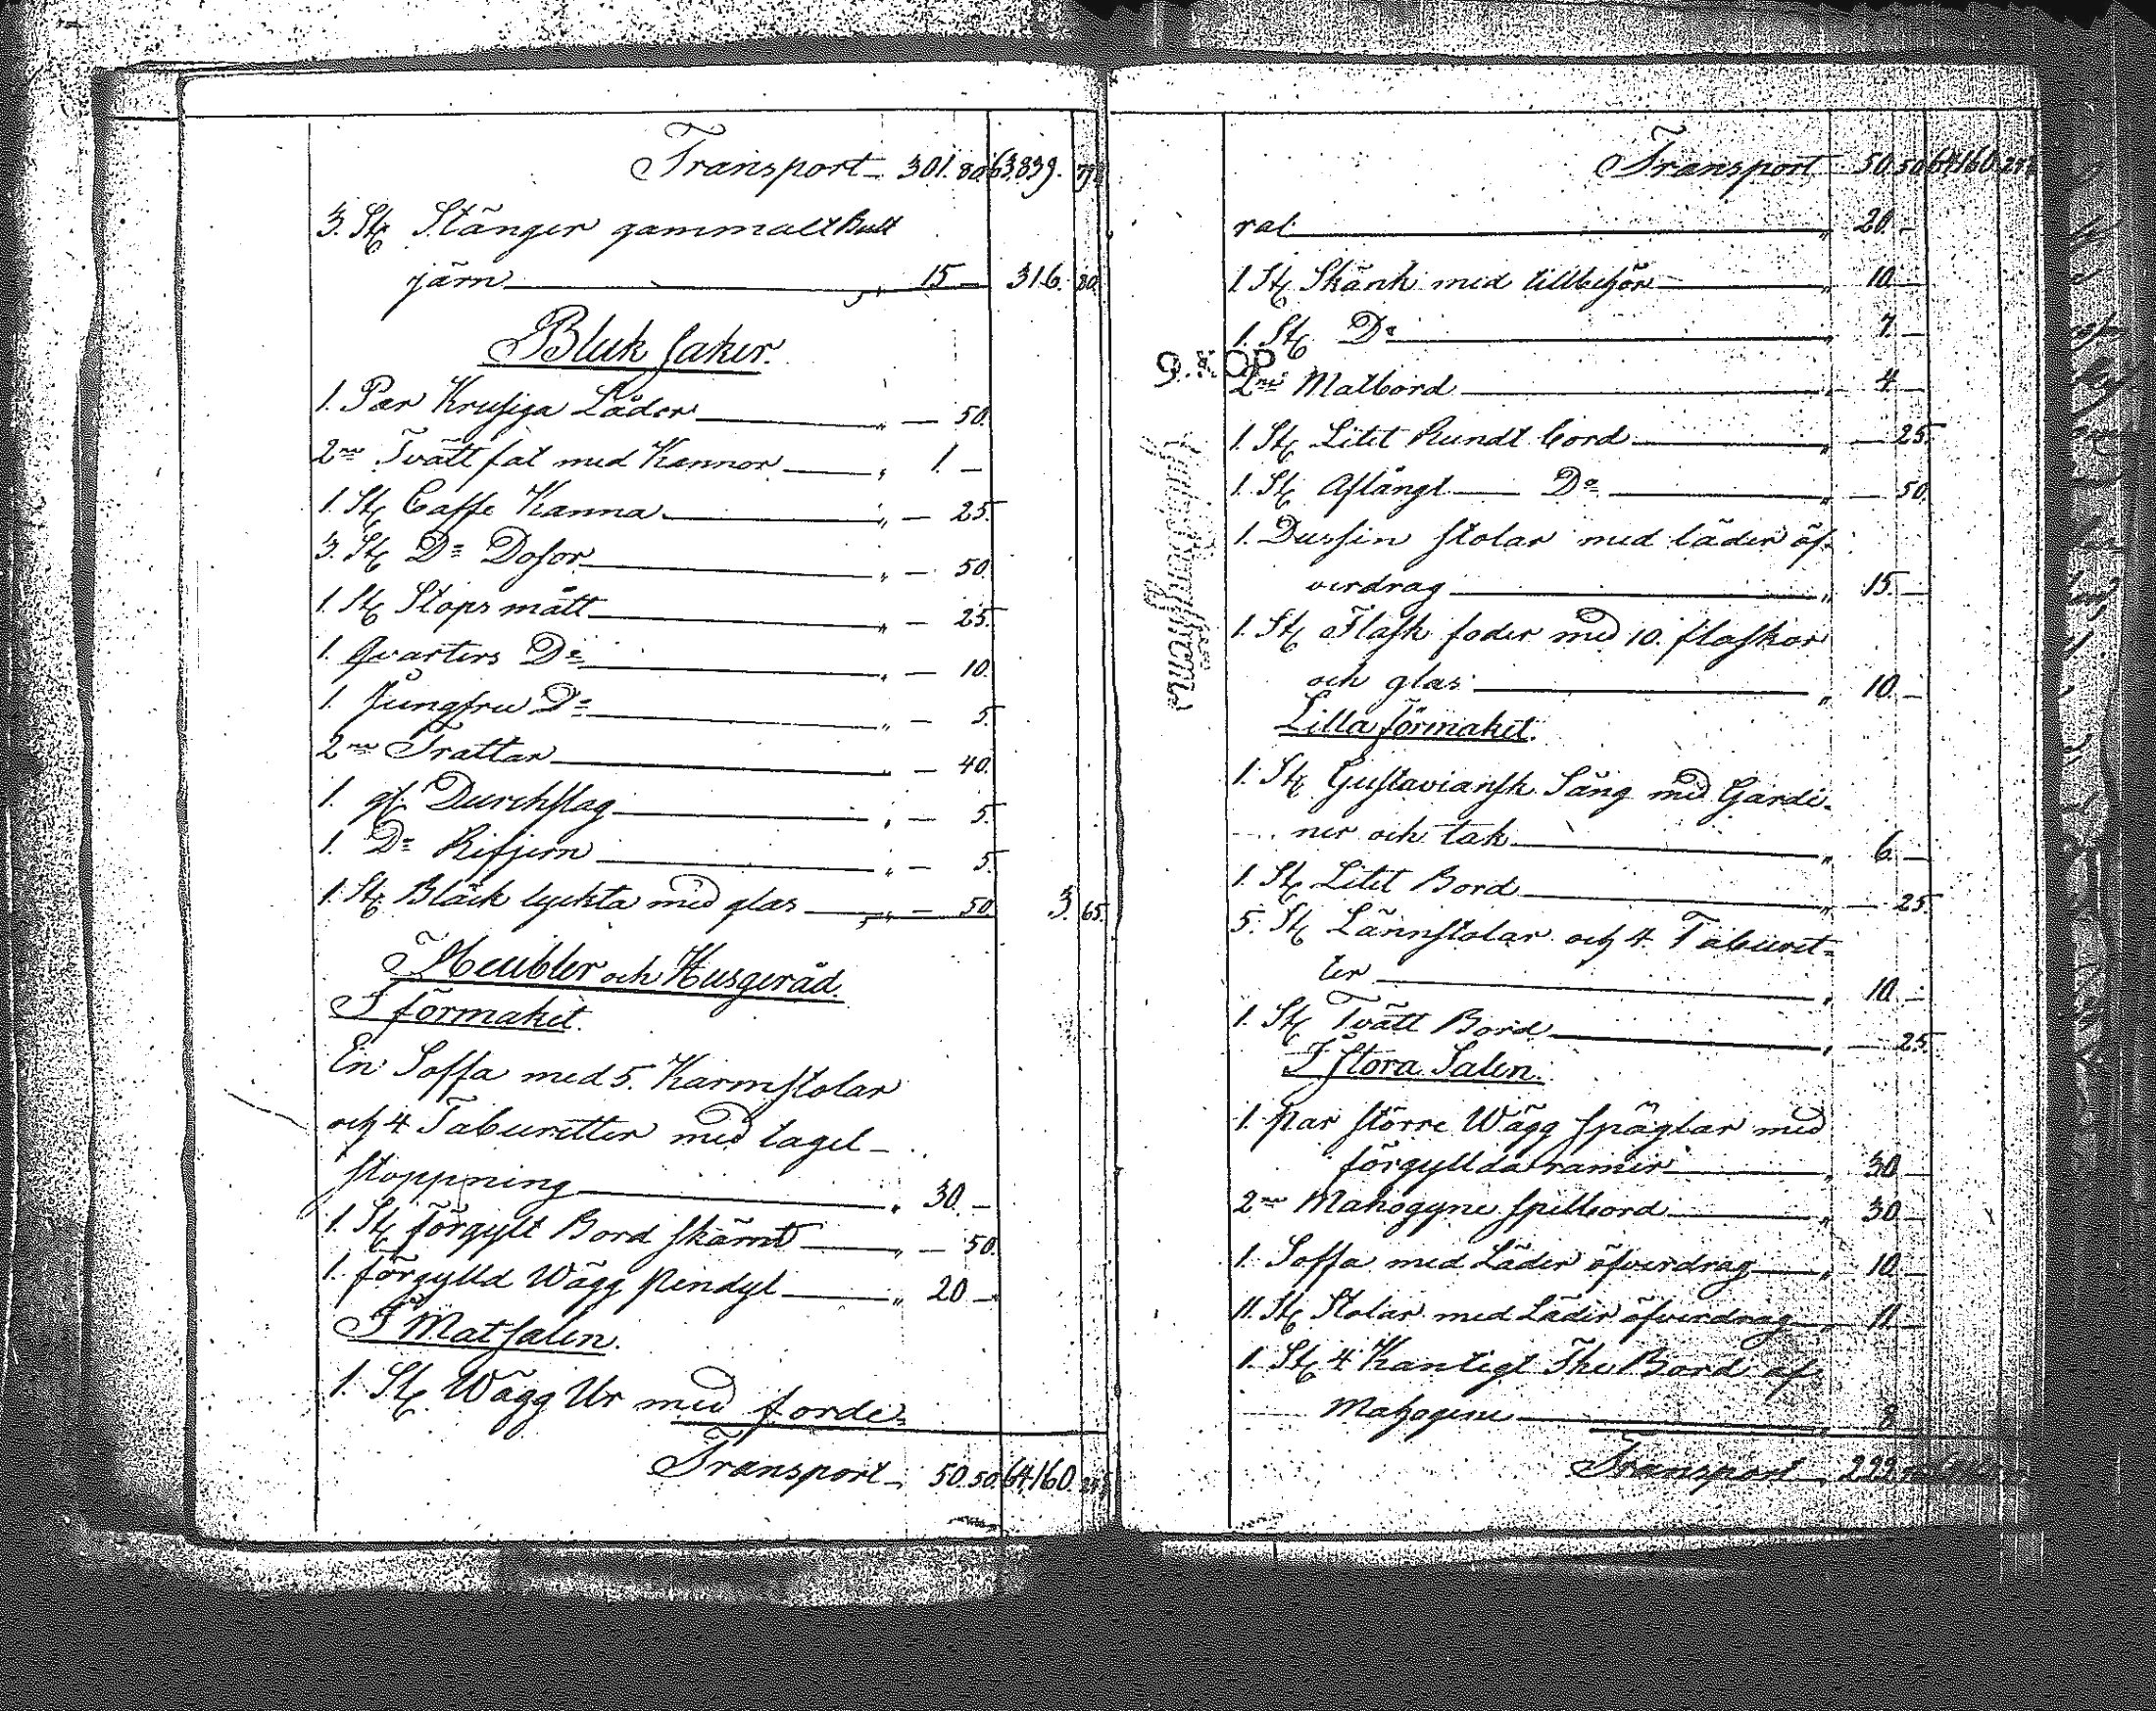 Transport 301. 80. 63,839.
3. St. Stänger gammalt Bult
järn " 15 — 316. 80.
Bleck saker.
1. Par Krusiga Läder " — 50.
2ne Tvätt fat med Kannor " 1. —
1. St. Caffe Kanna " — 25.
3. St. Do Dosor " — 50.
1. St. Stops mått " — 25.
1. Qvarters Do " — 10.
1. Jungfru Do " — 5.
2ne Trattar " — 40.
1. gl. Durchslag " — 5.
1. Do Rifjern " — 5.
1. St. Bläck lyckta med glas " — 50. 3. 65.
Meubler och Husgeråd.
I förmaket.
En Soffa med 5. Karmstolar
och 4 Taburetter med tagel-
stoppning " 30. —
1. St. förgylt Bord " — 50.
1. förgylld Wägg Pendyl " 20 —
I Matsalen.
1. St. Wägg Ur med forde=
Transport 50. 50. 64,160.
Transport 50. 50. 64,160.
ral " 20. —
1. St. Skänk med tillbehör " 10. —
1. St. Do " 7 —
9. KOP
2ne Matbord " 4 —
1. St. Litet Rundt bord " — 25.
1. St. Aflångt Do " — 50.
1. Dussin stolar med läder öf-
verdrag " 15. —
1. St. Flask foder med 10. flaskor
och glas " 10. —
Lilla förmaket.
1. St. Gustaviansk Säng med Gardi-
ner och tak " 6. —
1. St. Litet Bord " — 25.
5. St. Lännstolar och 4. Taburet=
ter " 10. —
1. St. Tvätt Bord " — 25.
I stora Salen.
1. par större Wägg späglar med
förgyllda ramer " 30 —
2ne Mahogyne spelbord " 30 —
1. Soffa med Läder öfverdrag " 10 —
11. St. Stolar med Läder öfverdrag " 11 —
1. St. 4 Kantigt The Bord af
Mahogene " 8
Transport